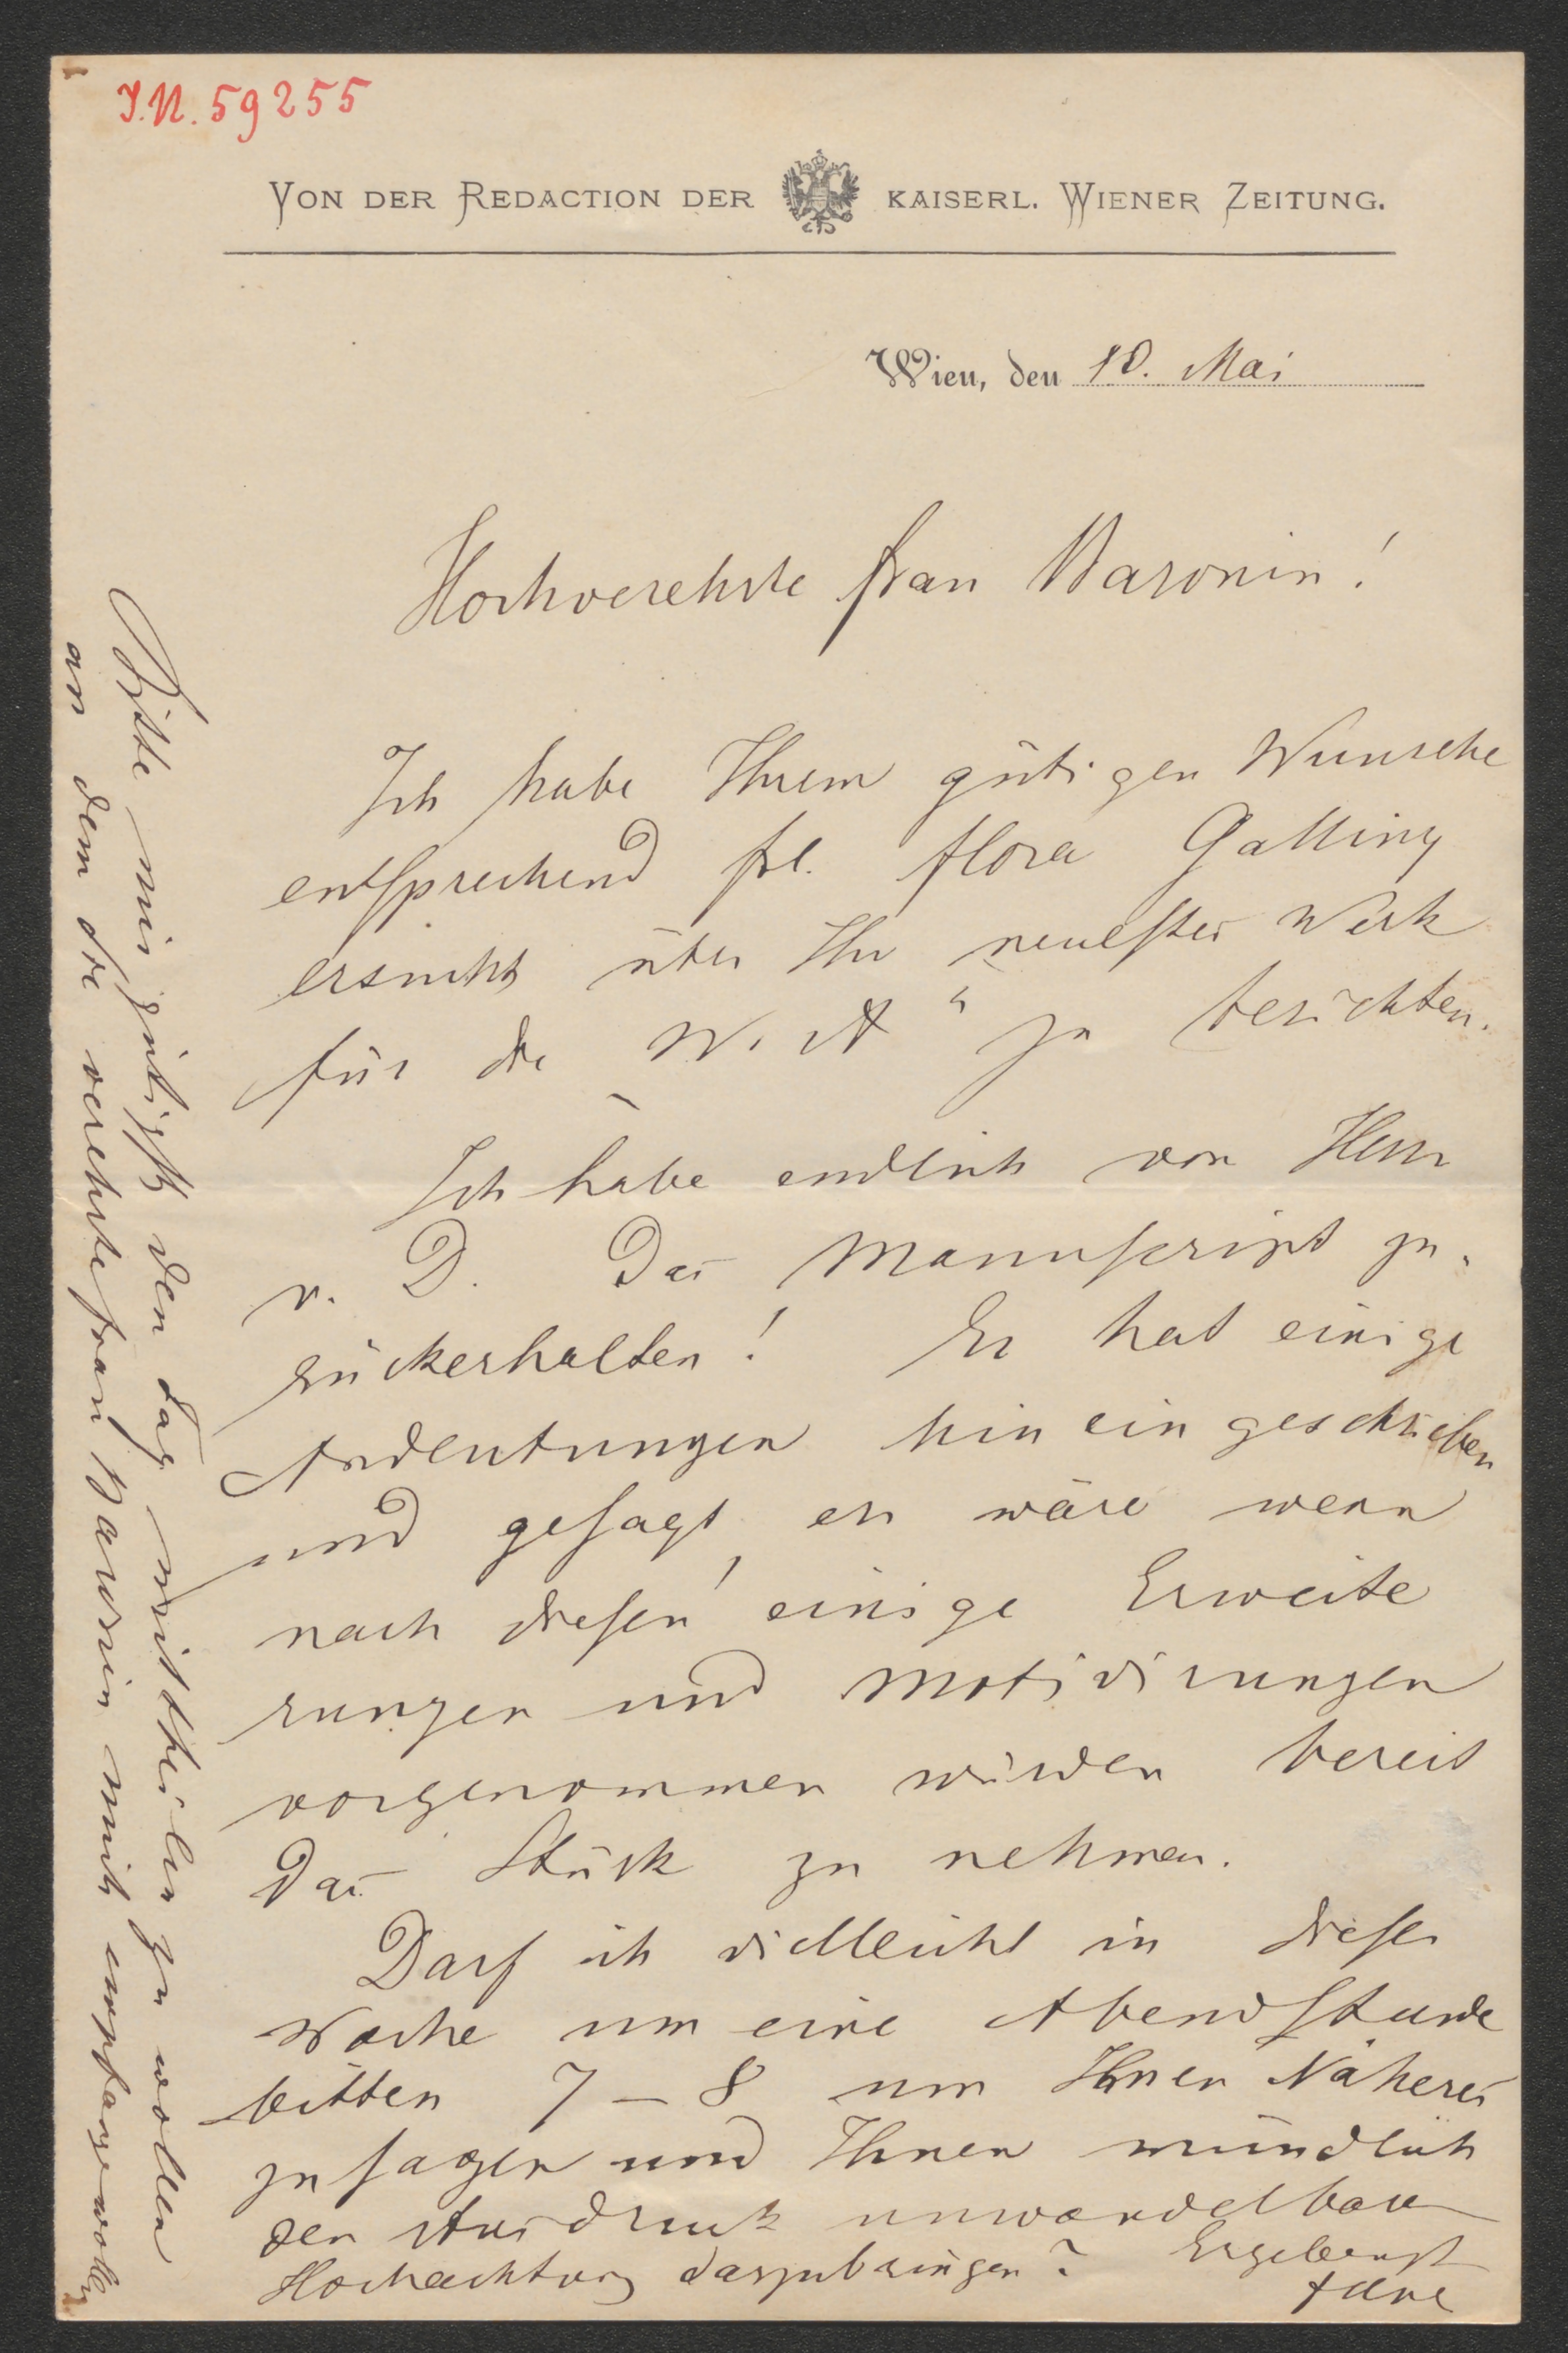 J.N. 59255
VON DER REDACTION DER KAISERL. WIENER ZEITUNG.
Wien, den 10. Mai
Hochverehrte Frau Baronin!
Ich habe Ihrem gütigen Wunsche
entsprechend Frl. Flora Galliny
ersucht über Ihr neuestes Werk
für die „W. A“ zu berichten.
Ich habe endlich von Herr
v. D. das Manuscript zu-
rückerhalten! Er hat einige
Andeutungen hineingeschrieben
und gesagt, er wäre wenn
nach diesen einige Erweite
rungen und Motivirungen
vorgenommen würden bereit
das Stück zu nehmen.
Darf ich vielleicht in dieser
Woche um eine Abendstunde
bitten 7 – 8 um Ihnen Näheres
zu sagen und Ihnen mündlich
den Ausdruck unwandelbarer
Hochachtung darzubringen? Ergebenst
Bitte mir gütigst den Tag mittheilen zu wollen
an dem die verehrte Frau Baronin mich empfangen wollen